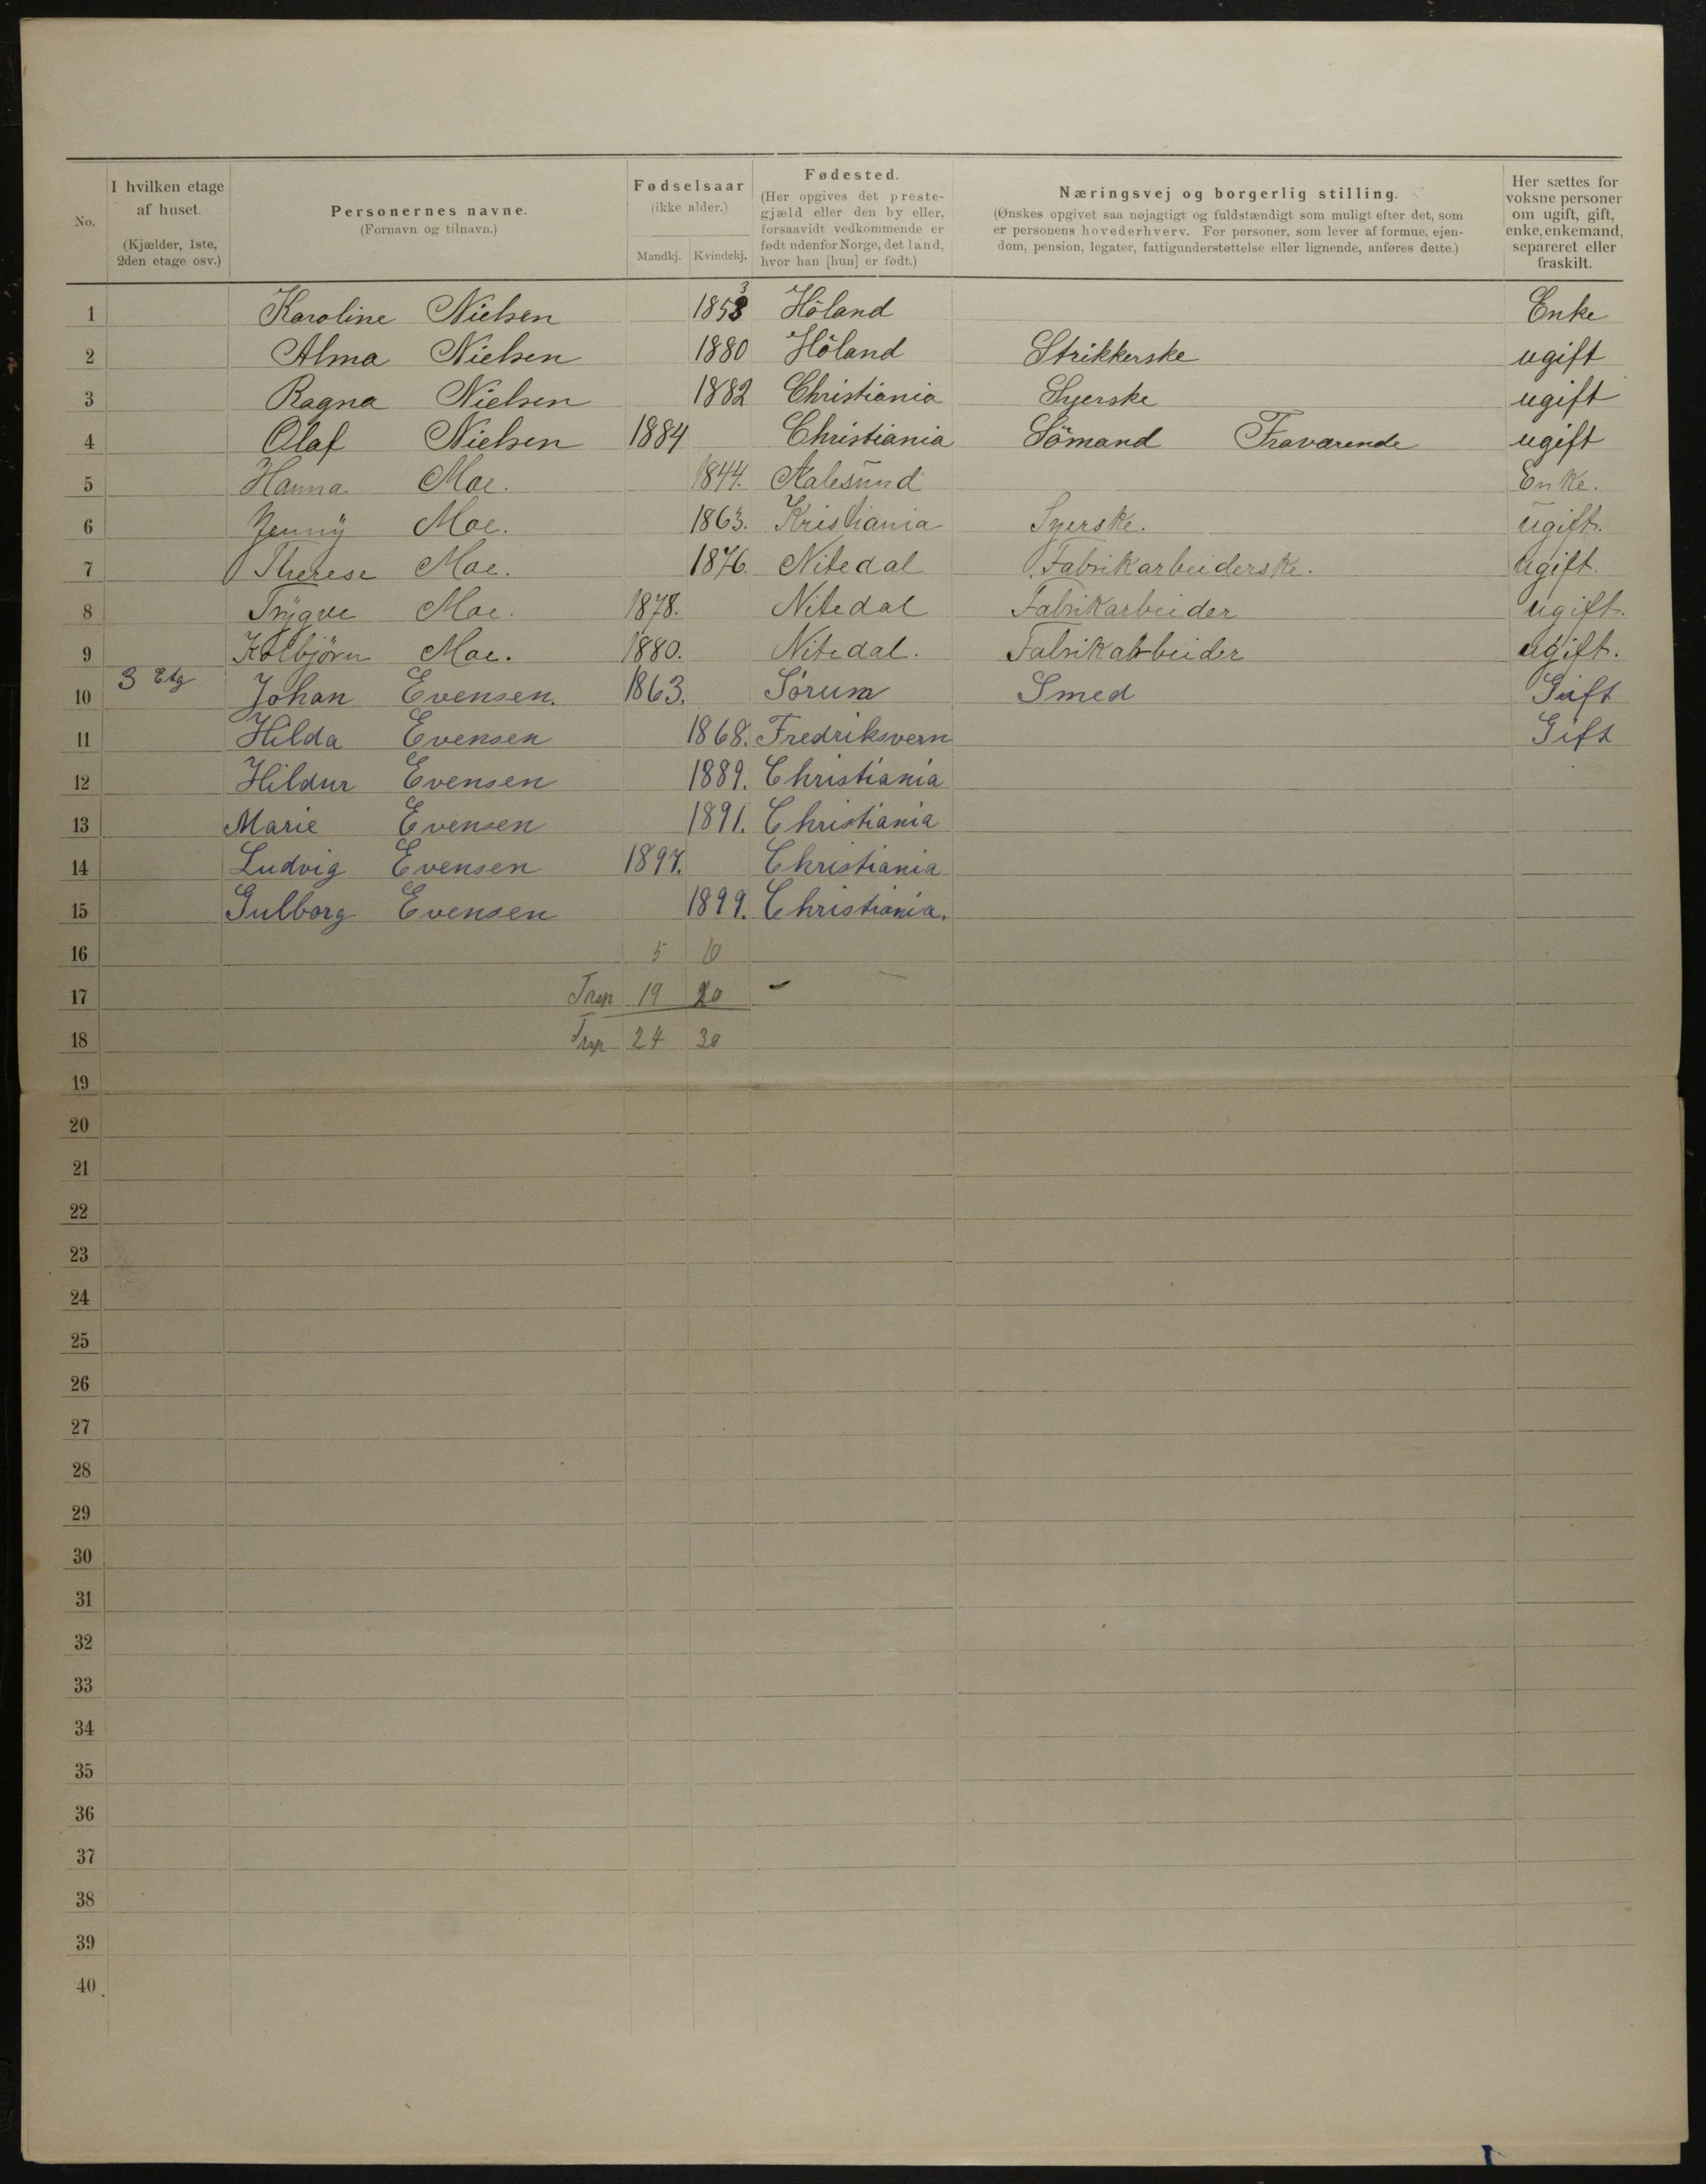 No.
I hvilken etage af huset.
(Kjælder, 1ste, 2den etage osv.)
Personernes navne.
(Fornavn og tilnavn.)
Fødselsaar
(ikke alder.)
Mandkj. Kvindekj.
Fødested.
(Her opgives det preste-
gjæld eller den by eller,
forsaavidt vedkommende er
født udenfor Norge, det land,
hvor han [hun] er født.)
Næringsvej og borgerlig stilling.
(Ønskes opgivet saa nøjagtigt og fuldstændigt som muligt efter det, som
er personens hovederhverv. For personer, som lever af formue, ejen-
dom, pension, legater, fattigunderstøttelse eller lignende, anføres dette.)
Her sættes for
voksne personer
om ugift, gift,
enke, enkemand,
separeret eller
fraskilt.
1 Karoline Nielsen 1853 Höland Enke
2 Alma Nielsen 1880 Höland Strikkerske ugift
3 Ragna Nielsen 1882 Christiania Syerske ugift
4 Olaf Nielsen 1884 Christiania Sömand Fraværende ugift
5 Hanna Moe. 1844. Aalesund Enke.
6 Jenny Moe. 1863. Kristiania Syerske. ugift.
7 Therese Moe. 1876. Nitedal Fabrikarbeiderske. ugift.
8 Trygve Moe. 1878. Nitedal Fabrikarbeider ugift.
9 Kolbjörn Moe. 1880. Nitedal. Fabrikarbeider ugift.
10 3 Etg Johan Evensen. 1863. Sørum Smed Gift
11 Hilda Evensen 1868. Fredriksvern Gift
12 Hildur Evensen 1889. Christiania
13 Marie Evensen 1891. Christiania
14 Ludvig Evensen 1897. Christiania
15 Gulborg Evensen 1899. Christiania.
16 5 10
17 Trsp 19 20
18 Trsp 24 30
19
20
21
22
23
24
25
26
27
28
29
30
31
32
33
34
35
36
37
38
39
40